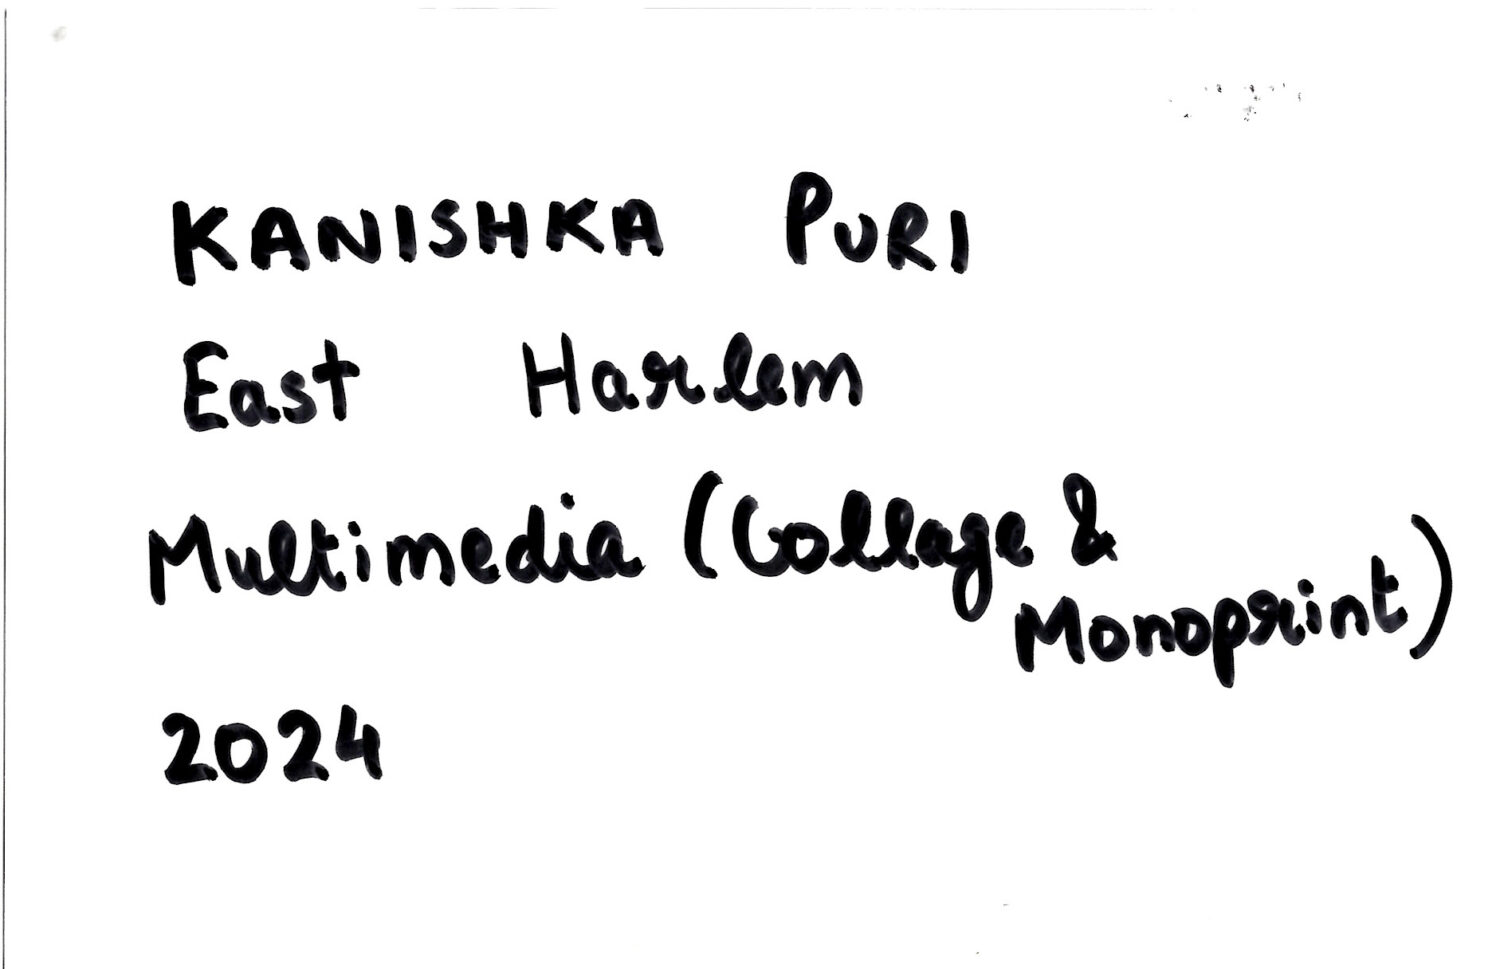 KANISHKA PURI
East Harlem
Multimedia (Collage &
Monoprint)
2024